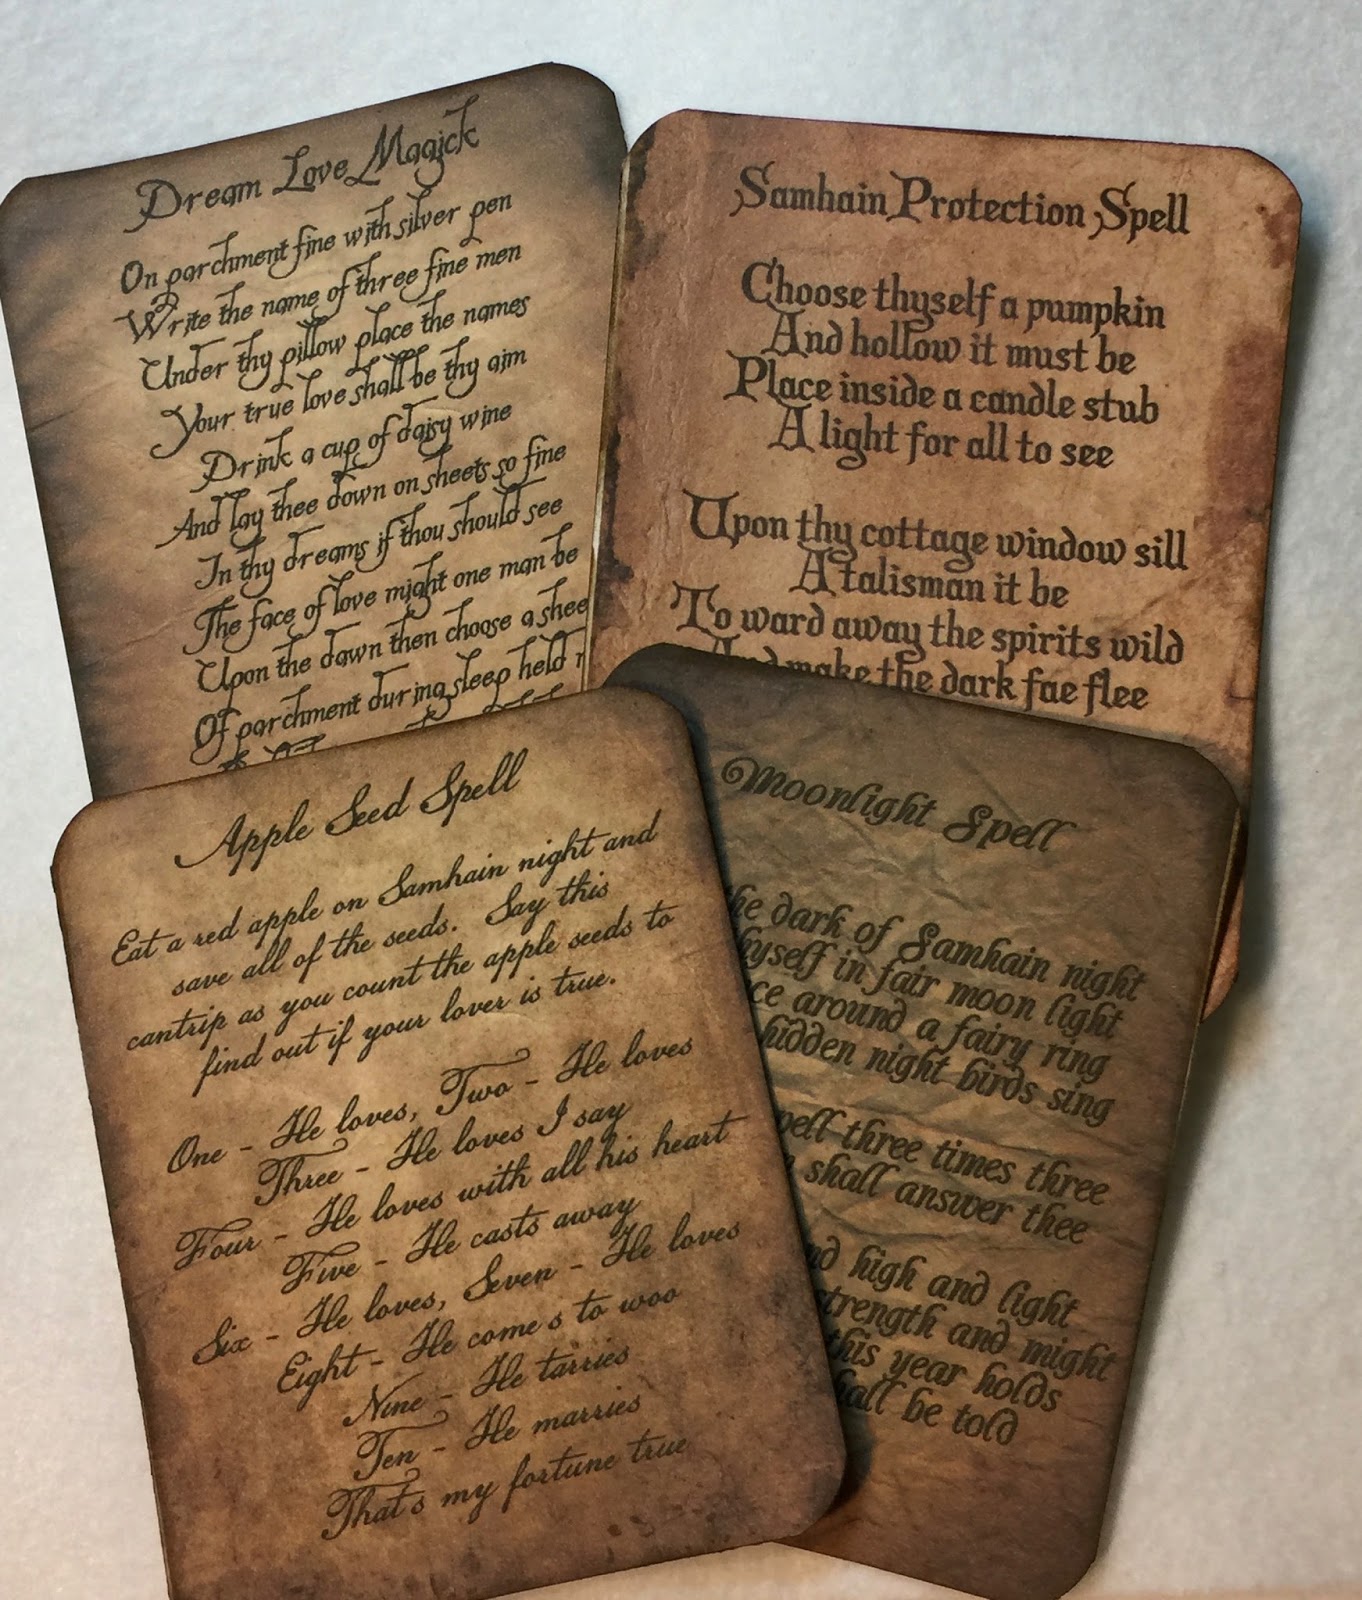 Dream Love Magick
On parchment fine with silver pen
Write the name of three fine men
Under thy pillow place the names
Your true love shall be thy aim
Drink a cup of daisy wine
And lay thee down on sheets so fine
In thy dreams if thou should see
The face of love might one man be
Upon the dawn then choose a shee
Of parchment during sleep held
Samhain Protection Spell
Choose thyself a pumpkin
And hollow it must be
Place inside a candle stub
A light for all to see
Upon thy cottage window sill
A talisman it be
To ward away the spirits wild
And make the dark fae flee
Apple Seed Spell
Eat a red apple on Samhain night and
save all of the seeds. Say this
cantrip as you count the apple seeds to
find out if your lover is true.
One - He loves, Two - He loves
Three - He loves I say
Four - He loves with all his heart
Five - He casts away
Six - He loves, Seven - He loves
Eight - He come s to woo
Nine - He tarries
Ten - He marries
That's my fortune true
Moonlight Spell
the dark of Samhain night
hyself in fair moon light
ce around a fairy ring
hidden night birds sing
pell three times three
shall answer thee
nd high and light
strength and might
this year holds
hall be told